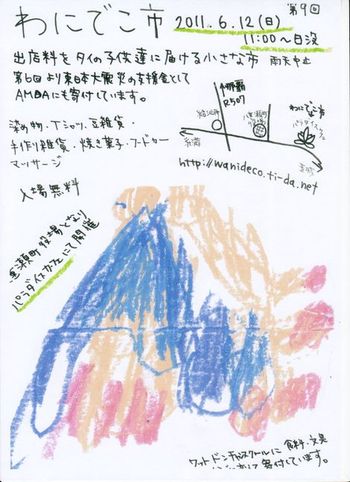 わにでこ市 2011.6.12(日) 第9回
11:00〜日没
出店料をタイの子供達に届ける小さな市 雨天中止
第6回より東日本大震災の支援金として
AMDAにも寄付しています。
染め物・Tシャツ・豆雑貨・
手作り雑貨・焼き菓子・フードetc
マッサージ
那覇
R507
わにでこ市
パラダイスカフェ
糸満
http://wanideco.ti-da.net
入場無料
恵瀬町役場となり
パラダイスカフェにて開催
ワットドンチャンスクールに 食料・文具
として寄付しています。